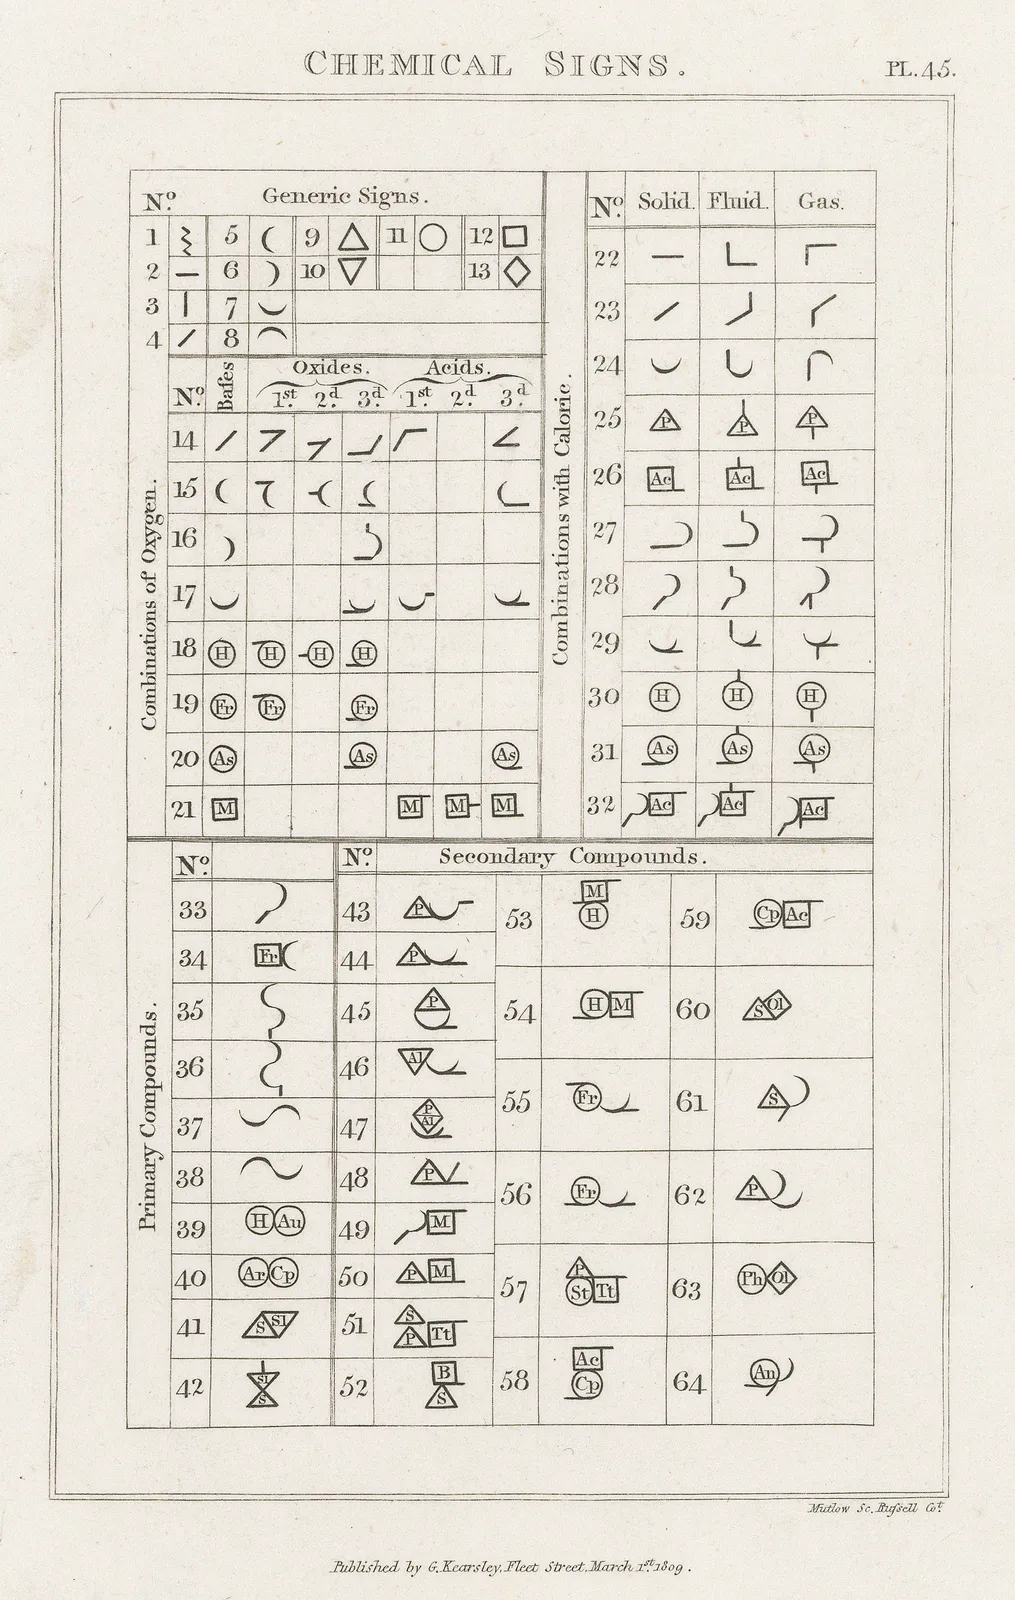 CHEMICAL SIGNS.
PL. 45.
Nº. Generic Signs.
1 5 9 11 12
2 6 10 13
3 7
4 8
Nº. Baſes Oxides. Acids.
1st. 2d. 3d. 1st. 2d. 3d.
Combinations of Oxygen.
14
15
16
17
18 H H H H
19 Fr Fr Fr
20 As As As
21 M M M M
Combinations with Caloric.
Nº. Solid. Fluid. Gas.
22
23
24
25 P P P
26 Ac Ac Ac
27
28
29
30 H H H
31 As As As
32 Ac Ac Ac
Primary Compounds.
Nº.
33
34 Fr
35
36
37
38
39 H Au
40 Ar Cp
41 S SI
42 SI S
Nº. Secondary Compounds.
43 P
44 P
45 P
46 Al
47 P Al
48 P
49 M
50 P M
51 S P Tt
52 B S
53 M H
54 H M
55 Fr
56 Fr
57 P St Tt
58 Ac Cp
59 Cp Ac
60 S Ol
61 S
62 P
63 Ph Ol
64 An
Mutlow Sc. Ruſsell Cot.
Published by G. Kearsley, Fleet Street, March 1st. 1809.